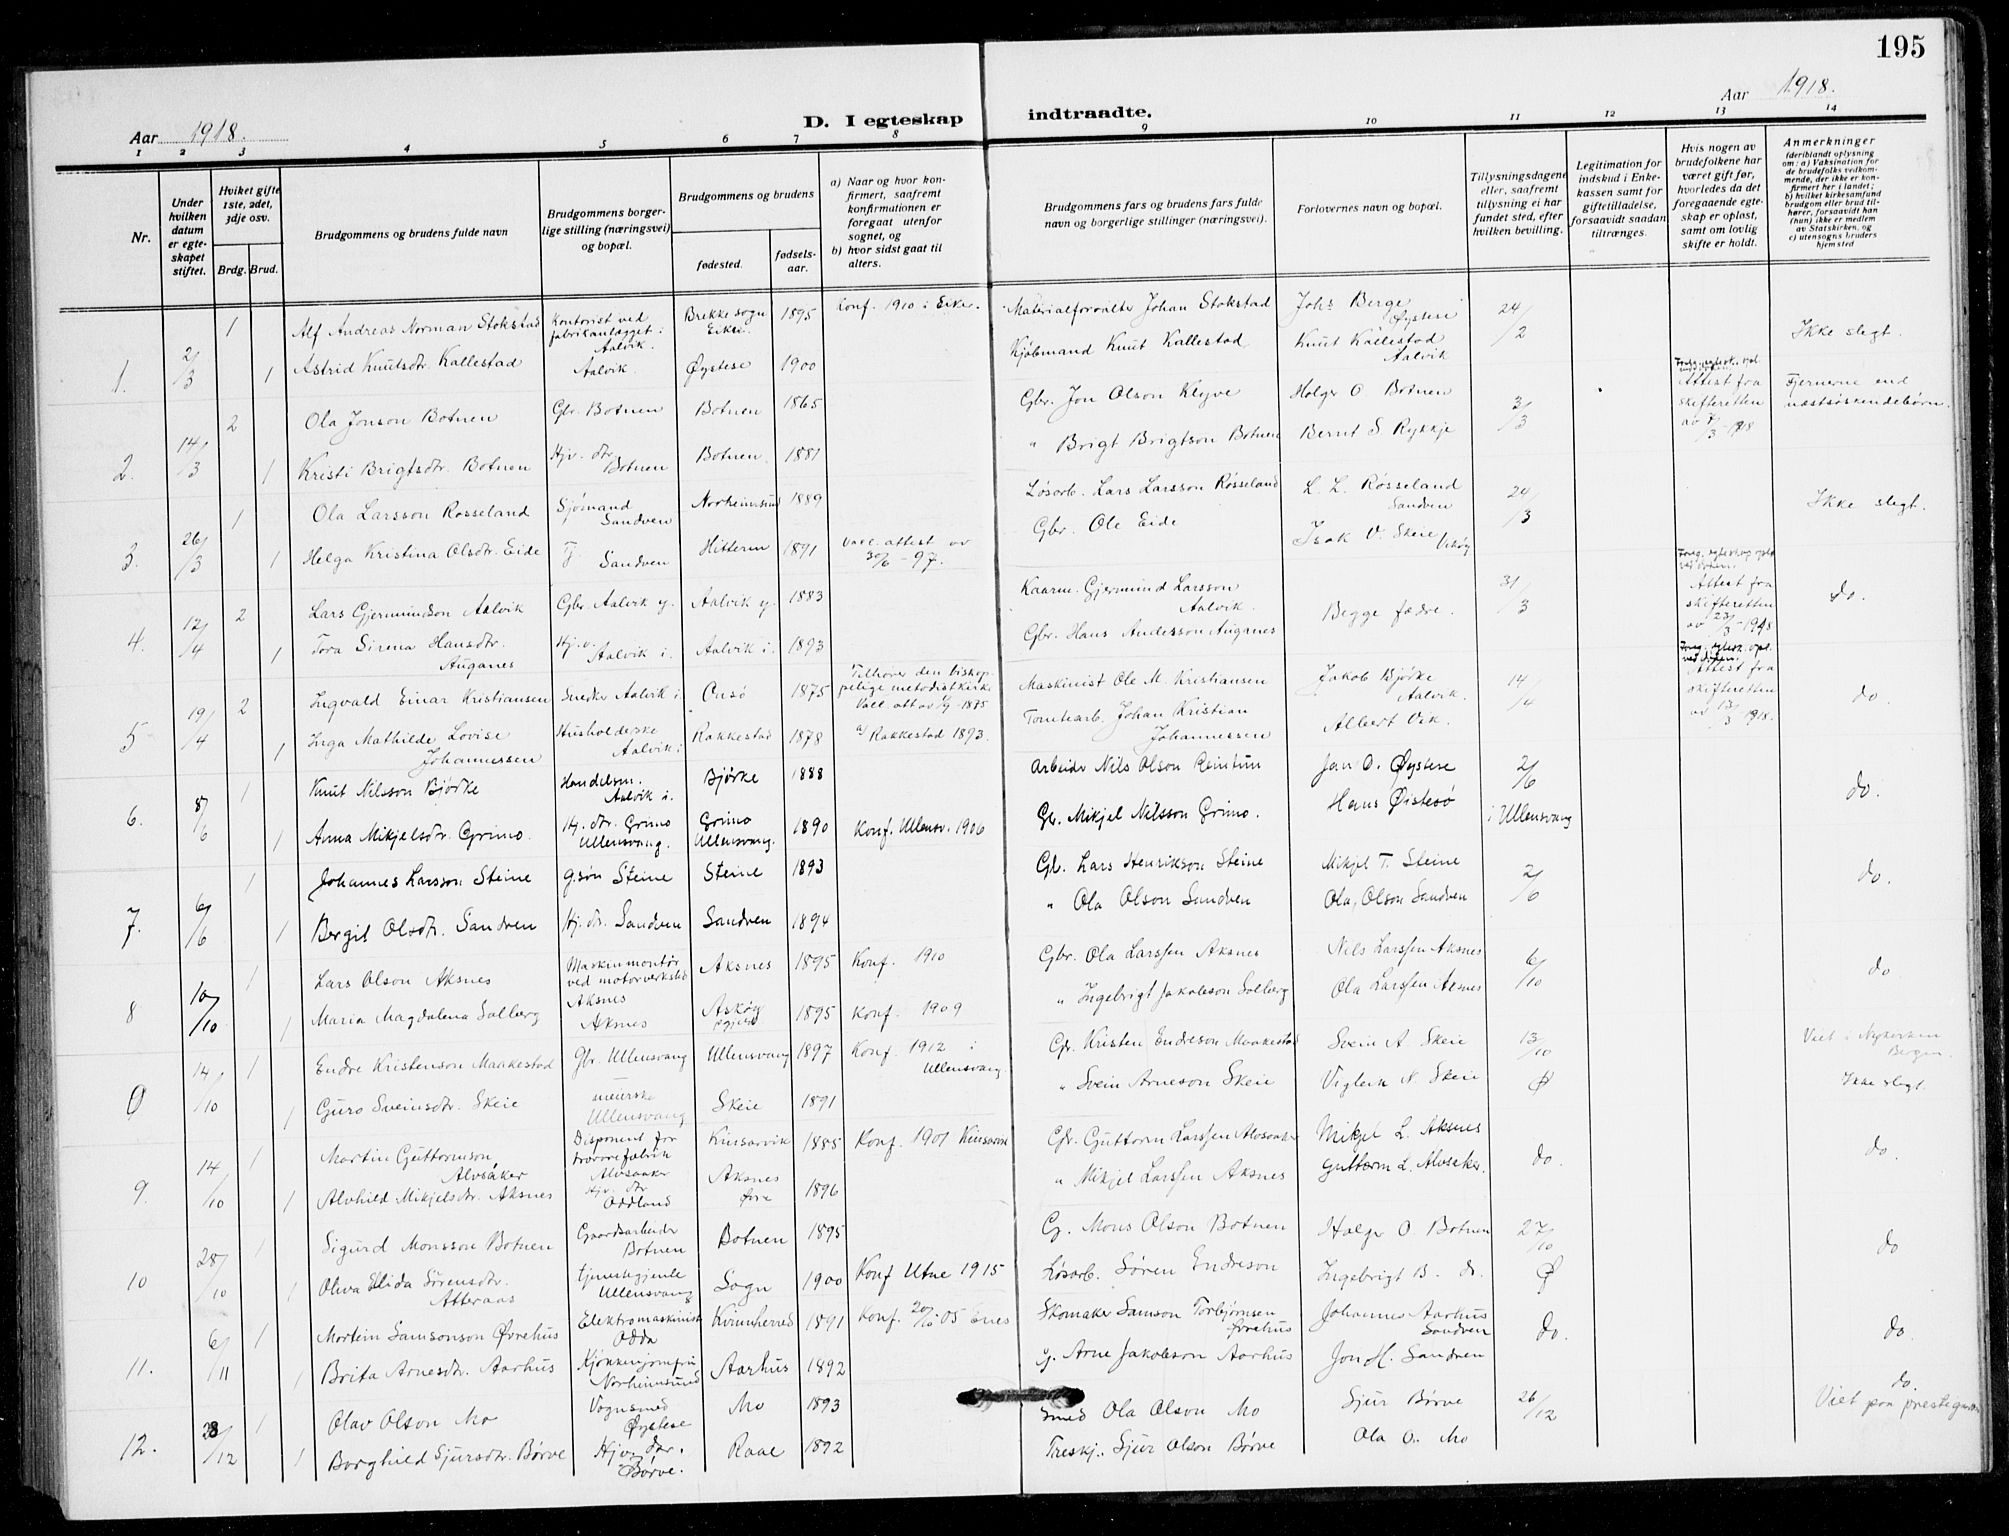 195
Aar 1918.
D. I egteskap indtraadte.
Aar 1918.
1 2 3 4 5 6 7 8 9 10 11 12 13 14
Nr.
Under hvilken datum er egteskapet stiftet.
Hvilket gifte 1ste, 2det, 3dje osv.
Brdg. Brud.
Brudgommens og brudens fulde navn
Brudgommens borgerlige stilling (næringsvei) og bopæl.
Brudgommens og brudens
fødested.
fødselsaar.
a) Naar og hvor konfirmert, saafremt konfirmationen er foregaat utenfor sognet, og
b) hvor sidst gaat til alters.
Brudgommens fars og brudens fars fulde navn og borgerlige stillinger (næringsvei).
Forlovernes navn og bopæl.
Tillysningsdagene eller, saafremt tillysning ei har fundet sted, efter hvilken bevilling.
Legitimation for indskud i Enkekassen samt for giftetilladelse, forsaavidt saadan tiltrænges.
Hvis nogen av brudefolkene har været gift før, hvorledes da det foregaaende egteskap er opløst, samt om lovlig skifte er holdt.
Anmerkninger
(deriblandt oplysning om: a) Vaksination for de brudefolks vedkommende, der ikke er konfirmert her i landet; b) hvilket kirkesamfund brudgom eller brud tilhører, forsaavidt han (hun) ikke er medlem av Statskirken, og c) utensogns bruders hjemsted
1. 2/3 1 Alf Andreas Norman Stokstad Kontorist ved fabrikanlægget i Aalvik. Brekke sogn Eiker. 1895 Konf. 1910 i Eiker. Materialforvalter Johan Stokstad Johs Berge Øystese 24/2 Ikke slegt.
1 Astrid Knutsdtr. Kallestad Aalvik. Øystese 1900 Kjøbmand Knut Kallestad Knut Kallestad Aalvik
2. 14/3 2 Ola Jonson Botnen Gbr. Botnen Botnen 1865 Gbr. Jon Olson Klyve Holger O Botnen 3/3 Attest fra skifteretten av 7/3-1918 Fjernerne end næstsøskendebørn.
1 Kristi Brigtsdtr. Botnen Hjv. dtr. Botnen Botnen. 1881 " Brigt Brigtson Botnen Bernt S. Rykkje
3. 26/3 1 Ola Larsson Rosseland Sjømand Sandven Norheimsund 1889 Løsarb. Lars Larsson Røsseland L. L. Røsseland Sandven 24/3 Ikke slegt.
1 Helga Kristina Olsdtr. Eide Tj Sandven Hitteren 1891 Vacc. attest av 30/6-97. Gbr. Ole Eide Isak V. Skeie Vikøy
4. 12/4 2 Lars Gjermundson Aalvik Gbr. Aalvik y. Aalvik y. 1883 Kaarm. Gjermund Larsson Aalvik. Begge fædre. 31/3 Attest fra skifteretten av 23/3-1918 do.
1 Tora Sirena Hansdtr. Auganes Hj. v. Aalvik i. Aalvik i. 1893 Gbr. Hans Andersson Auganes
5 19/4 2 Ingvald Einar Kristiansen Snedker Aalvik i. Onsø 1875 Tilhører den biskoppelige metodistkirke Maskinist Ole M. Kristiansen Jakob Bjørke Aalvik. 14/4 Attest fra skifteretten av 13/3 1918. do
1 Inga Mathilde Lovise Johannessen Husholderske Aalvik i Rakkestad 1878 a) Rakkestad 1893. Tomtearb. Johan Kristian Johannessen Albert Vik.
6. 8/6 1 Knut Nilsson Bjørke Handelsm. Aalvik i. Bjørke 1888 Arbeider Nils Olson Reintun Jon O. Øystese 2/6 do.
1 Anna Mikjelsdtr. Grimo. Hj. dtr. Grimo Ullensvang. Grimo Ullensvang. 1890 Konf. Ullensv. 1906 Gb. Mikjel Nilsson Grimo. Hans Øistesø i Ullensvang
7. 6/6 1 Johannes Larsson Steine g.søn Steine Steine 1893 Gb. Lars Henrikson Steine Mikjel T. Steine 2/6 do.
1 Bergit Olsdtr. Sandven Hj. dtr. Sandven Sandven 1894 " Ola Olson Sandven Ola Olson Sandven
8 10/10 1 Lars Olson Aksnes Maskinmontør ved motorverksted Aksnes Aksnes 1895 Konf. 1910 Gbr. Ola Larssen Aksnes Nils Larssen Aksnes 6/10 do
1 Maria Magdalena Solberg Aksnes Askøy 1895 Konf. 1909 " Ingebrigt Jakobson Solberg Ola Larssen Aksnes
14/10 1 Endre Kristenson Maakestad Gbr. Ullensvang Ullensvang 1897 Konf. 1912 i Ullensvang. Gbr. Kristen Endreson Maakestad Svein A. Skeie 13/10 Viet i Nykirken Bergen.
1 Guro Sveinsdtr. Skeie Ullensvang Skeie 1891 " Svein Arneson Skeie Vigleik N. Skeie Ø Ikke slegt.
9. 14/10 1 Martin Guttormson Alvsåker Disponent for Alvsaaker Kinsarvik 1885 Konf. 1901 Kinsarvik Gbr. Guttorm Larssen Alvsaaker Mikjel L. Aksnes do. do.
1 Alvhild Mikjelsdtr. Aksnes Hjv. dtr. Oddland Aksnes Øvre 1896 " Mikjel Larssen Aksnes Guttorm L. Alvsaker.
10 28/10 1 Sigurd Monsson Botnen Gaardsarbeider Botnen Botnen 1895 G. Mons Olson Botnen Holger O. Botnen 27/10 do
1 Oliva Elida Sørensdtr. Atteraas tjenestegjente Ullensvang Sogn 1900 Konf Utne 1915 Løsarb. Søren Endreson Ingebrigt B. do. Ø
11. 6/11 1 Mortein Samsonson Øvrehus Elektromaskinist Odda Kvinnherred 1891 Konf. 05 Enes Skomaker Samson Torbjørnsen Øvrehus Johannes Aarhus Sandven do. do.
1 Brita Arnesdtr. Aarhus Kjøkkenjomfru Norheimsund Aarhus 1892 g. Arne Jakobson Aarhus Jon H. Sandven
12. 28/12 1 Olav Olson Mo Vognsmed Øystese Mo 1893 Smed Ola Olson Mo Sjur Børve 26/12 do. Viet paa prestegaarden
1 Borghild Sjursdtr. Børve Hjv. dtr. Børve. Raae 1892 Treskj. Sjur Olson Børve Ola O. Mo